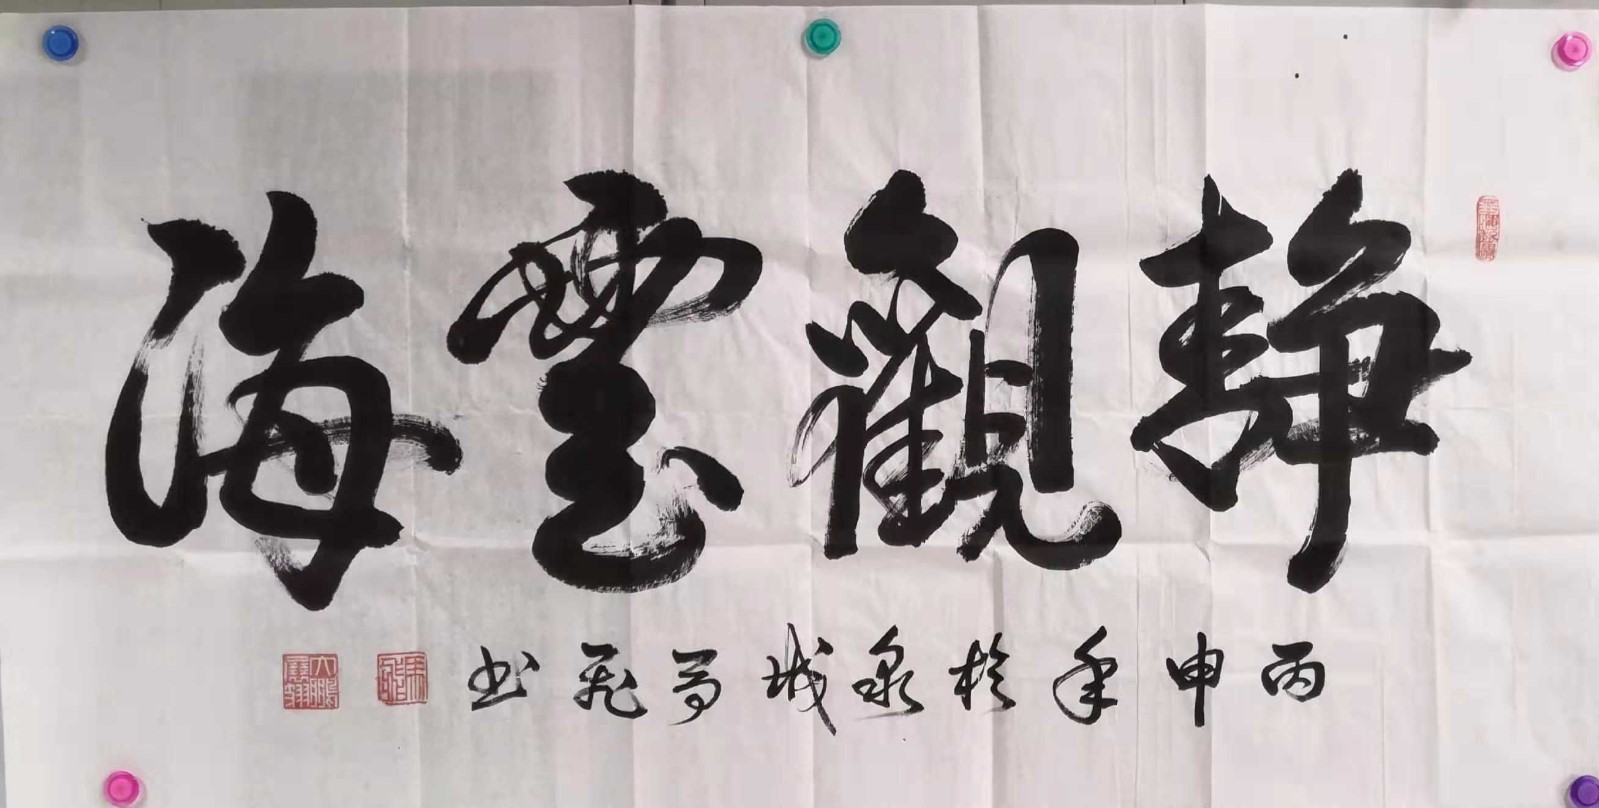 静觀雲海
丙申年於泉城马飛书